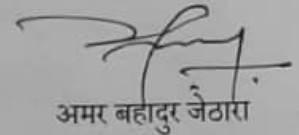 अमर बहादुर जेठारा